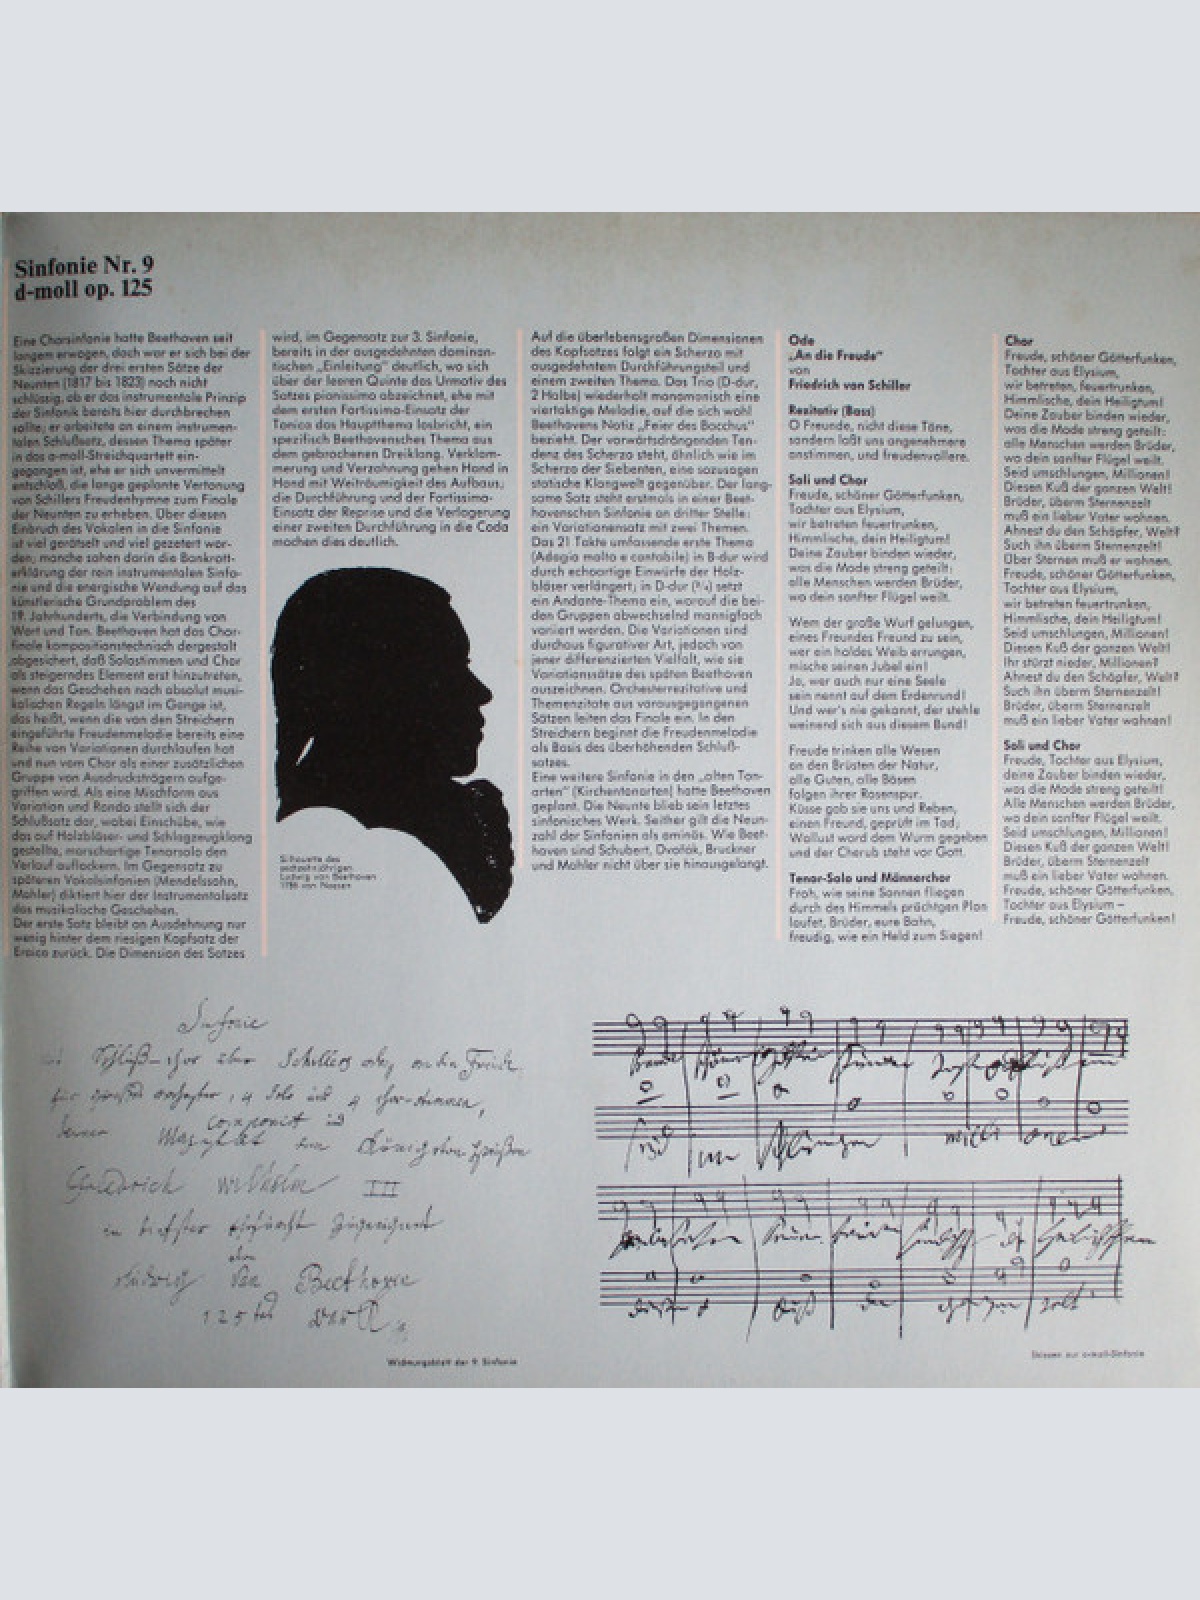 Sinfonie Nr. 9
d-moll op. 125
Eine Chorsinfonie hatte Beethoven seit
langem erwogen, doch war er sich bei der
Skizzierung der drei ersten Sätze der
Neunten (1817 bis 1823) noch nicht
schlüssig, ob er das instrumentale Prinzip
der Sinfonik bereits hier durchbrechen
sollte; er arbeitete an einem instrumen-
talen Schlußsatz, dessen Thema später
in das a-moll-Streichquartett ein-
gegangen ist, ehe er sich unvermittelt
entschloß, die lange geplante Vertonung
von Schillers Freudenhymne zum Finale
der Neunten zu erheben. Über diesen
Einbruch des Vokalen in die Sinfonie
ist viel gerätselt und viel gezetert wor-
den; manche sahen darin die Bankrott-
erklärung der rein instrumentalen Sinfo-
nie und die energische Wendung auf das
künstlerische Grundproblem des
19. Jahrhunderts, die Verbindung von
Wort und Ton. Beethoven hat das Chor-
finale kompositionstechnisch dergestalt
abgesichert, daß Solostimmen und Chor
als steigerndes Element erst hinzutreten,
wenn das Geschehen nach absolut musi-
kalischen Regeln längst im Gange ist,
das heißt, wenn die von den Streichern
eingeführte Freudenmelodie bereits eine
Reihe von Variationen durchlaufen hat
und nun vom Chor als einer zusätzlichen
Gruppe von Ausdrucksträgern aufge-
griffen wird. Als eine Mischform aus
Variation und Rondo stellt sich der
Schlußsatz dar, wobei Einschübe, wie
das auf Holzbläser- und Schlagzeugklang
gestellte, marschartige Tenorsolo den
Verlauf auflockern. Im Gegensatz zu
späteren Vokalsinfonien (Mendelssohn,
Mahler) diktiert hier der Instrumentalsatz
das musikalische Geschehen.
Der erste Satz bleibt an Ausdehnung nur
wenig hinter dem riesigen Kopfsatz der
Eroica zurück. Die Dimension des Satzes
wird, im Gegensatz zur 3. Sinfonie,
bereits in der ausgedehnten dominan-
tischen „Einleitung" deutlich, wo sich
über der leeren Quinte das Urmotiv des
Satzes pianissimo abzeichnet, ehe mit
dem ersten Fortissimo-Einsatz der
Tonica das Hauptthema losbricht, ein
spezifisch Beethovensches Thema aus
dem gebrochenen Dreiklang. Verklam-
merung und Verzahnung gehen Hand in
Hand mit Weiträumigkeit des Aufbaus,
die Durchführung und der Fortissimo-
Einsatz der Reprise und die Verlagerung
einer zweiten Durchführung in die Coda
machen dies deutlich.
Silhouette des
sechzehnjährigen
Ludwig van Beethoven
1786 von Neesen
Auf die überlebensgroßen Dimensionen
des Kopfsatzes folgt ein Scherzo mit
ausgedehntem Durchführungsteil und
einem zweiten Thema. Das Trio (D-dur,
2 Halbe) wiederholt monomanisch eine
viertaktige Melodie, auf die sich wohl
Beethovens Notiz „Feier des Bacchus"
bezieht. Der vorwärtsdrängenden Ten-
denz des Scherzo steht, ähnlich wie im
Scherzo der Siebenten, eine sozusagen
statische Klangwelt gegenüber. Der lang-
same Satz steht erstmals in einer Beet-
hovenschen Sinfonie an dritter Stelle:
ein Variationensatz mit zwei Themen.
Das 21 Takte umfassende erste Thema
(Adagio molto e cantabile) in B-dur wird
durch echoartige Einwürfe der Holz-
bläser verlängert; in D-dur (³/₄) setzt
ein Andante-Thema ein, worauf die bei-
den Gruppen abwechselnd mannigfach
variiert werden. Die Variationen sind
durchaus figurativer Art, jedoch von
jener differenzierten Vielfalt, wie sie
Variationssätze des späten Beethoven
auszeichnen. Orchesterrezitative und
Themenzitate aus vorausgegangenen
Sätzen leiten das Finale ein. In den
Streichern beginnt die Freudenmelodie
als Basis des überhöhenden Schluß-
satzes.
Eine weitere Sinfonie in den „alten Ton-
arten" (Kirchentonarten) hatte Beethoven
geplant. Die Neunte blieb sein letztes
sinfonisches Werk. Seither gilt die Neun-
zahl der Sinfonien als ominös. Wie Beet-
hoven sind Schubert, Dvořák, Bruckner
und Mahler nicht über sie hinausgelangt.
Ode
„An die Freude"
von
Friedrich von Schiller
Rezitativ (Bass)
O Freunde, nicht diese Töne,
sondern laßt uns angenehmere
anstimmen, und freudenvollere.
Soli und Chor
Freude, schöner Götterfunken,
Tochter aus Elysium,
wir betreten feuertrunken,
Himmlische, dein Heiligtum!
Deine Zauber binden wieder,
was die Mode streng geteilt:
alle Menschen werden Brüder,
wo dein sanfter Flügel weilt.
Wem der große Wurf gelungen,
eines Freundes Freund zu sein,
wer ein holdes Weib errungen,
mische seinen Jubel ein!
Ja, wer auch nur eine Seele
sein nennt auf dem Erdenrund!
Und wer's nie gekonnt, der stehle
weinend sich aus diesem Bund!
Freude trinken alle Wesen
an den Brüsten der Natur,
alle Guten, alle Bösen
folgen ihrer Rosenspur.
Küsse gab sie uns und Reben,
einen Freund, geprüft im Tod;
Wollust ward dem Wurm gegeben
und der Cherub steht vor Gott.
Tenor-Solo und Männerchor
Froh, wie seine Sonnen fliegen
durch des Himmels prächtgen Plan
laufet, Brüder, eure Bahn,
freudig, wie ein Held zum Siegen!
Chor
Freude, schöner Götterfunken,
Tochter aus Elysium,
wir betreten, feuertrunken,
Himmlische, dein Heiligtum!
Deine Zauber binden wieder,
was die Mode streng geteilt:
alle Menschen werden Brüder,
wo dein sanfter Flügel weilt.
Seid umschlungen, Millionen!
Diesen Kuß der ganzen Welt!
Brüder, überm Sternenzelt
muß ein lieber Vater wohnen.
Ahnest du den Schöpfer, Welt?
Such ihn überm Sternenzelt!
Über Sternen muß er wohnen.
Freude, schöner Götterfunken,
Tochter aus Elysium,
wir betreten feuertrunken,
Himmlische, dein Heiligtum!
Seid umschlungen, Millionen!
Diesen Kuß der ganzen Welt!
Ihr stürzt nieder, Millionen?
Ahnest du den Schöpfer, Welt?
Such ihn überm Sternenzelt!
Brüder, überm Sternenzelt
muß ein lieber Vater wohnen!
Soli und Chor
Freude, Tochter aus Elysium,
deine Zauber binden wieder,
was die Mode streng geteilt!
Alle Menschen werden Brüder,
wo dein sanfter Flügel weilt.
Seid umschlungen, Millionen!
Diesen Kuß der ganzen Welt!
Brüder, überm Sternenzelt
muß ein lieber Vater wohnen.
Freude, schöner Götterfunken,
Tochter aus Elysium –
Freude, schöner Götterfunken!
Sinfonie
Schluß-chor über Schillers ode, an die Freude
für großes orchester, 4 Solo und 4 chor-stimmen,
componirt und
Seiner Majestät dem König von Preußen
Friedrich Wilhelm III
in tiefster ehrfurcht zugeeignet
von
Ludwig van Beethoven
125tes Werk
Widmungsblatt der 9. Sinfonie
Skizzen zur d-moll-Sinfonie